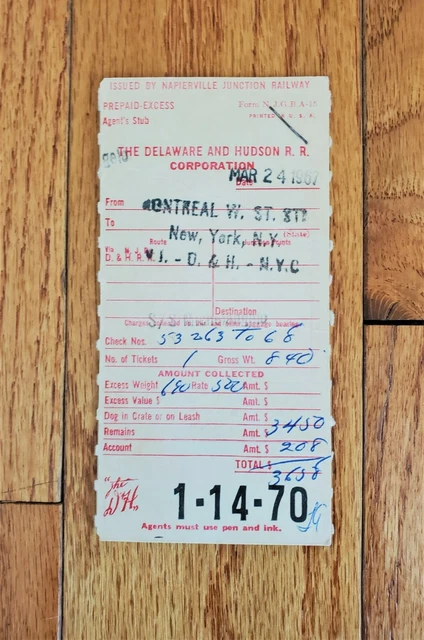 ISSUED BY NAPIERVILLE JUNCTION RAILWAY
PREPAID-EXCESS Form N.J.G.B.A-15
Agent's Stub PRINTED IN U. S. A.
THE DELAWARE AND HUDSON R. R.
CORPORATION
MAR 24 1967
Date
From MONTREAL W. ST. STN
To New, York, N.Y. (State)
Via N. J. R. Route Junction Points
D. & H. R. R. V.J. - D. & H. - N.Y.C
Destination
Check Nos. 53263 To 68
No. of Tickets 1 Gross Wt. 840
AMOUNT COLLECTED
Excess Weight 690 Rate 500 Amt. $
Excess Value $ Amt. $
Dog in Crate or on Leash Amt. $ 3450
Remains Amt. $
Account Amt. $ 208
TOTAL $ 3658
"The D&H"
1-14-70
Agents must use pen and ink.